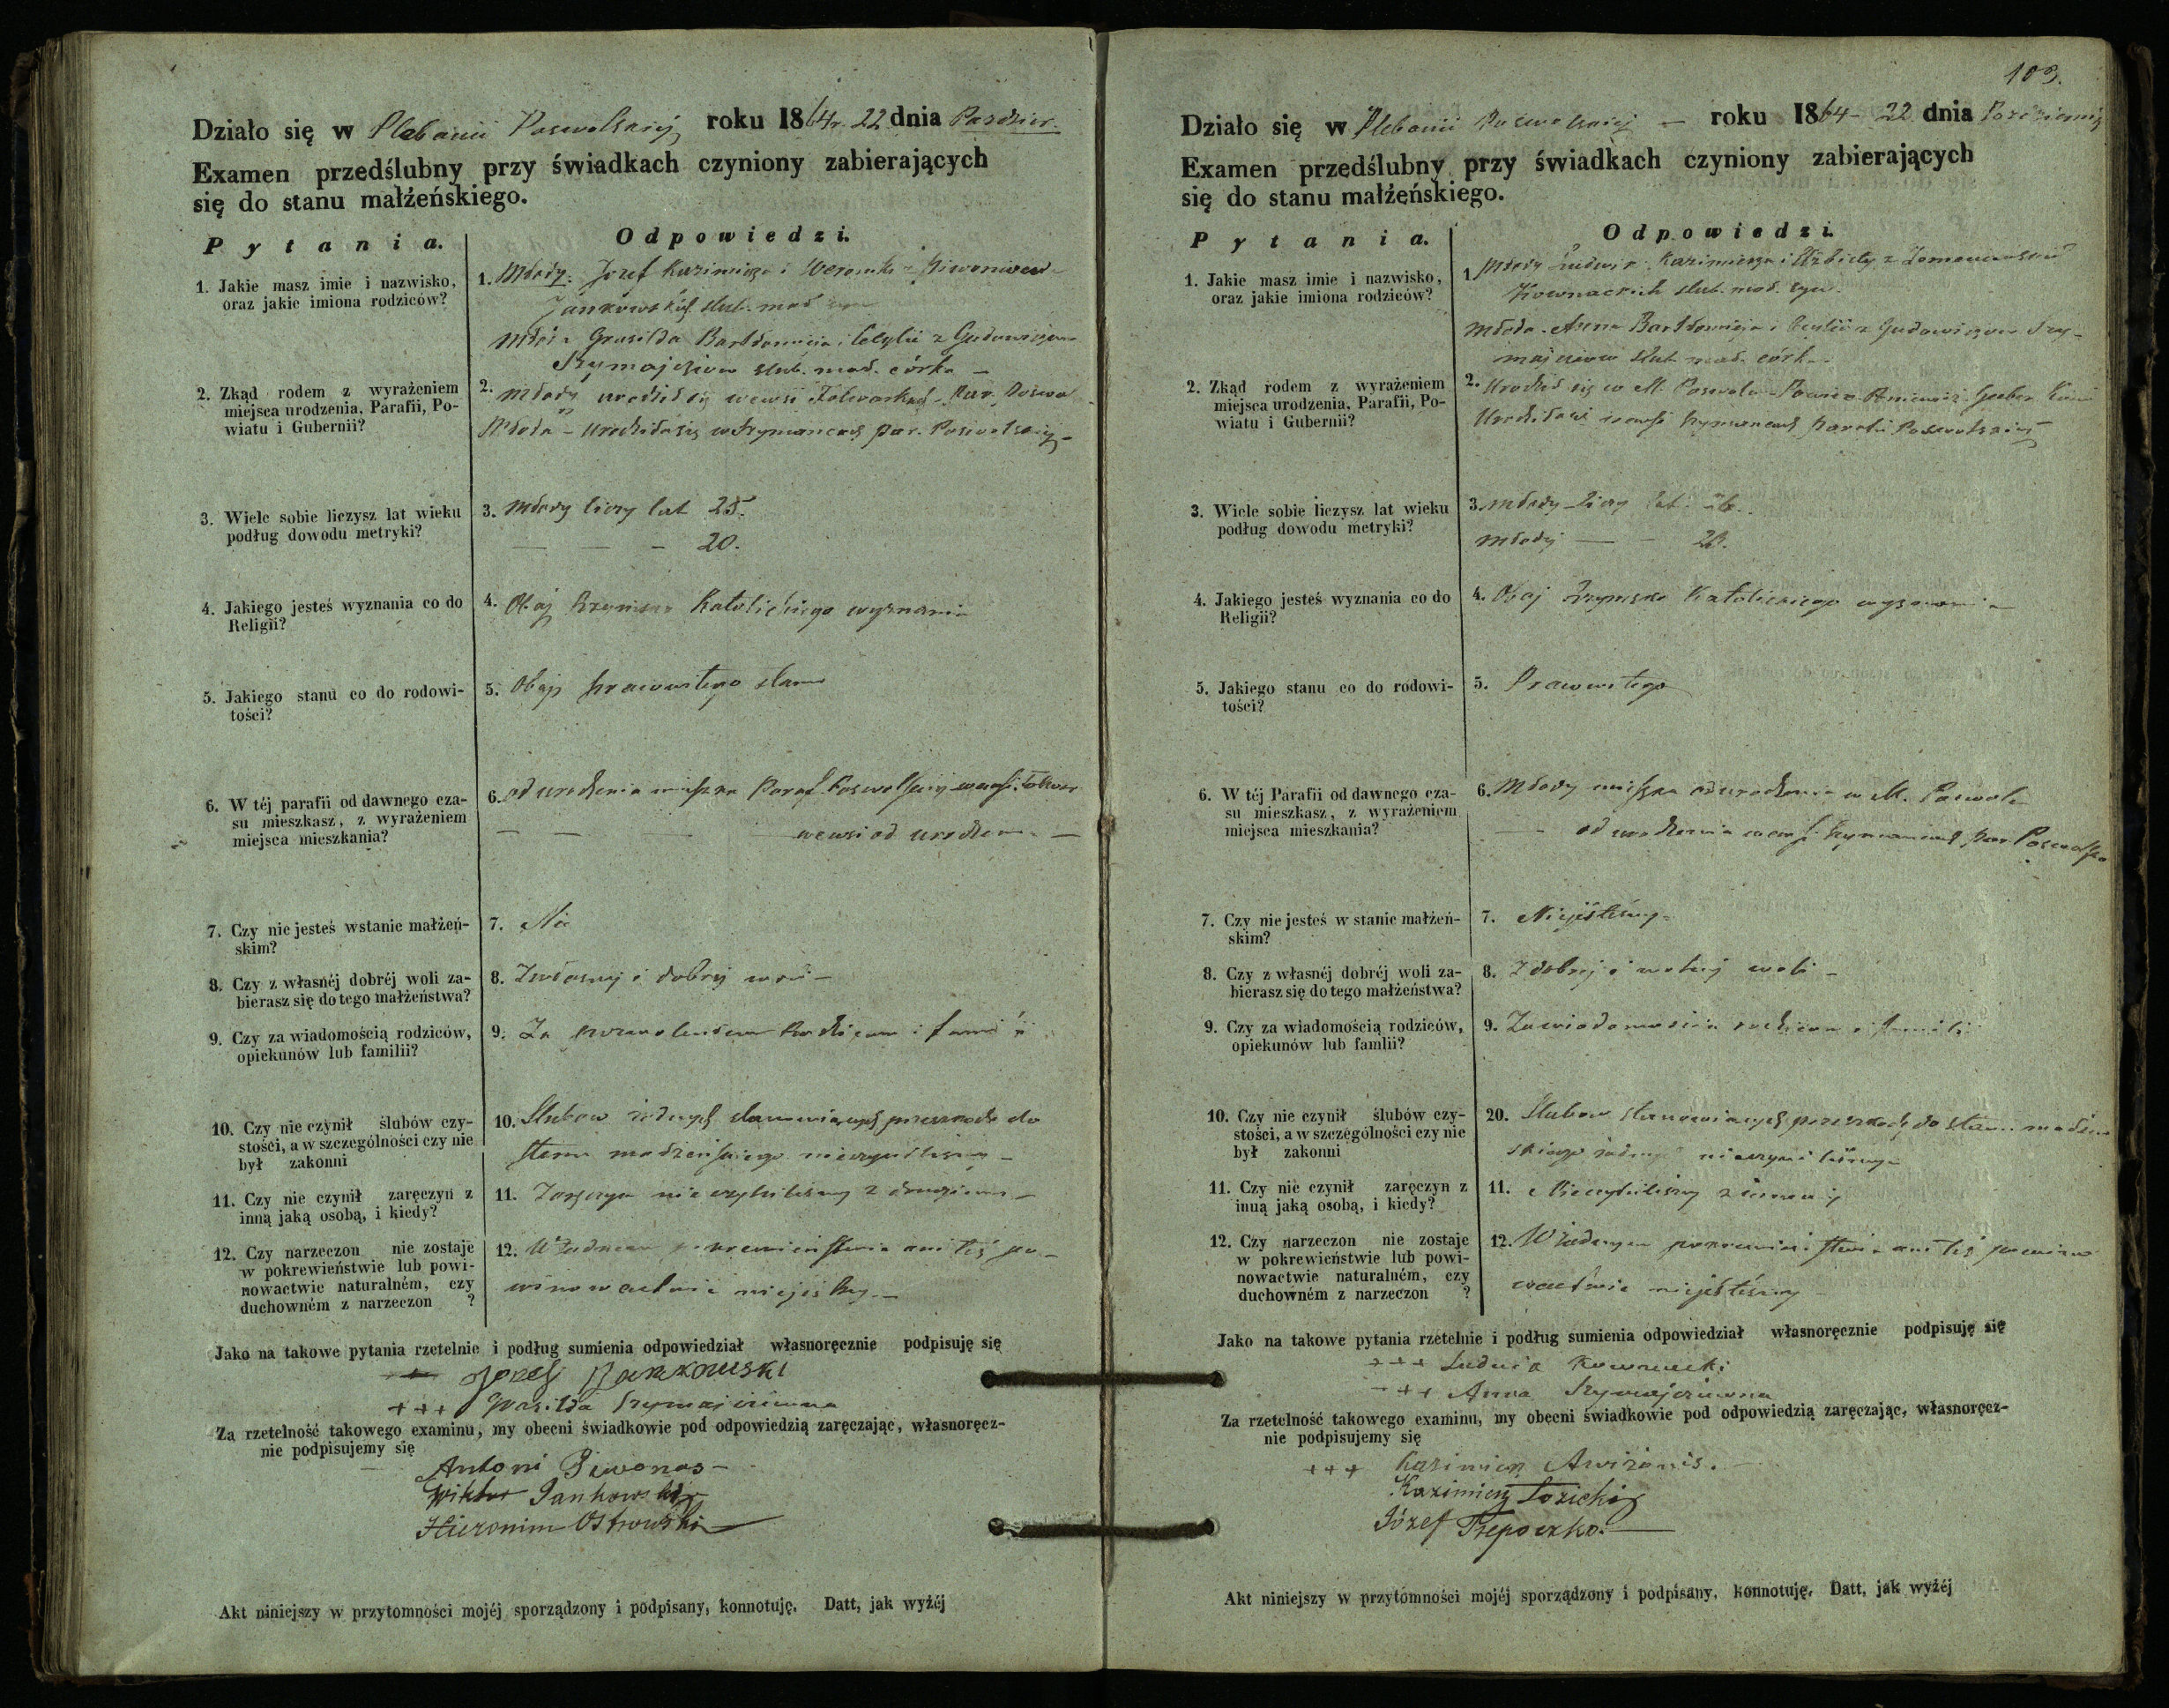 Działo się w Plebanii Poswolskiéj roku 1864 r. 22 dnia Paździer.
Examen przedślubny przy świadkach czyniony zabierających
się do stanu małżeńskiego.
Pytania.
Odpowiedzi.
1. Jakie masz imie i nazwisko,
oraz jakie imiona rodziców?
1. Młody: Jozef Kazimierza i Weroniki z
Jankowskich slub. mał. syn
Młoda Grasilda Bartłomieja i Cecylii z Gudowiczow
Szymajciow slub. mał. córka –
2. Zkąd rodem z wyrażeniem
miejsca urodzenia, Parafii, Po-
wiatu i Gubernii?
2. Młody urodził się we wsi Par. Poswol
Młoda – urodziła się w Szymancach par. Poswolskiej –
3. Wiele sobie liczysz lat wieku
podług dowodu metryki?
3. Młody liczy lat 25.
— — – 20.
4. Jakiego jesteś wyznania co do
Religii?
4. Obaj Rzymsko Katolickiego wyznania
5. Jakiego stanu co do rodowi-
tości?
5. Obaj prawowitego stanu
6. W téj parafii od dawnego cza-
su mieszkasz, z wyrażeniem
miejsca mieszkania?
6. od urodzenia mieszka Paraf. Poswolskiej we wsi
— — — we wsi od urodzenia —
7. Czy nie jesteś wstanie małżeń-
skim?
7. Nie
8. Czy z własnéj dobréj woli za-
bierasz się do tego małżeństwa?
8. Zwłasnej i dobrej woli –
9. Czy za wiadomością rodziców,
opiekunów lub familii?
9. Za pozwoleniem Rodzicow i familii
10. Czy nie czynił ślubów czy-
stości, a w szczególności czy nie
był zakonni
10. Slubow żadnych stanowiących przeszkode do
stanu małżeńskiego nieczyniliśmy –
11. Czy nie czynił zaręczyn z
inną jaką osobą, i kiedy?
11. Zaręczyn nie czyniliśmy z drugiemi –
12. Czy narzeczon nie zostaje
w pokrewieństwie lub powi-
nowactwie naturalném, czy
duchowném z narzeczon ?
12. W żadnem pokrewieństwie ani też po-
winowactwie niejesteśmy. –
Jako na takowe pytania rzetelnie i podług sumienia odpowiedział własnoręcznie podpisuję się
Jozef Jankowski
+++ Grasilda Szymajciowna
Za rzetelność takowego examinu, my obecni świadkowie pod odpowiedzią zaręczając, własnoręcz-
nie podpisujemy się
Antoni Piwonas –
Wiktor Jankowski
Hieronim Ostrowski
Akt niniejszy w przytomności mojéj sporządzony i podpisany, konnotuję. Datt, jak wyżéj
109.
Działo się w Plebanii Poswolskiej – roku 1864 – 22 dnia Pazdziernika
Examen przedślubny przy świadkach czyniony zabierających
się do stanu małżeńskiego.
Pytania.
Odpowiedzi.
1. Jakie masz imie i nazwisko,
oraz jakie imiona rodziców?
1. Młody Ludwik Kazimierza i Elżbiety z
Kownackich slub. mał. syn.
Młoda – Anna Bartłomieja i Cecylii z Gudowiczow Szy-
majciow slub mał. córka
2. Zkąd rodem z wyrażeniem
miejsca urodzenia, Parafii, Po-
wiatu i Gubernii?
2. Urodził się w M. Poswolu – Powie. Poniewież. Guber.
Urodziła się we wsi Szymancach parafii Poswolskiej
3. Wiele sobie liczysz lat wieku
podług dowodu metryki?
3. Młody liczy lat
Młody — –
4. Jakiego jesteś wyznania co do
Religii?
4. Obaj Rzymsko Katolickiego wyznania
5. Jakiego stanu co do rodowi-
tości?
5. Prawowitego
6. W téj Parafii od dawnego cza-
su mieszkasz, z wyrażeniem
miejsca mieszkania?
6. Młody mieszka od urodzenia w M. Poswolu
— od urodzenia we wsi Szymancach par. Poswolsk
7. Czy nie jesteś w stanie małżeń-
skim?
7. Niejesteśmy –
8. Czy z własnéj dobréj woli za-
bierasz się do tego małżeństwa?
8. Z dobrej i wolnej woli –
9. Czy za wiadomością rodziców,
opiekunów lub famlii?
9. Zawiadomością rodzicow i familii
10. Czy nie czynił ślubów czy-
stości, a w szczególności czy nie
był zakonni
20. Slubow stanowiących przeszkodę do stanu małżeń
skiego żadnych nieczyniliśmy –
11. Czy nie czynił zaręczyn z
inuą jaką osobą, i kiedy?
11. Nieczyniliśmy z innemi
12. Czy narzeczon nie zostaje
w pokrewieństwie lub powi-
nowactwie naturalném, czy
duchowném z narzeczon ?
12. W żadnym pokrewieństwie ani też powino
wactwie niejesteśmy –
Jako na takowe pytania rzetelnie i podług sumienia odpowiedział własnoręcznie podpisuję się
+++ Ludwik Kownacki
+++ Anna Szymajciowna
Za rzetelność takowego examinu, my obecni świadkowie pod odpowiedzią zaręczając, własnoręcz-
nie podpisujemy się
+++ Kazimierz Awiżonis.
Kazimierz Łozicki
Józef Trepoczko.
Akt niniejszy w przytomności mojéj sporządzony i podpisany, konnotuję. Datt, jak wyżéj